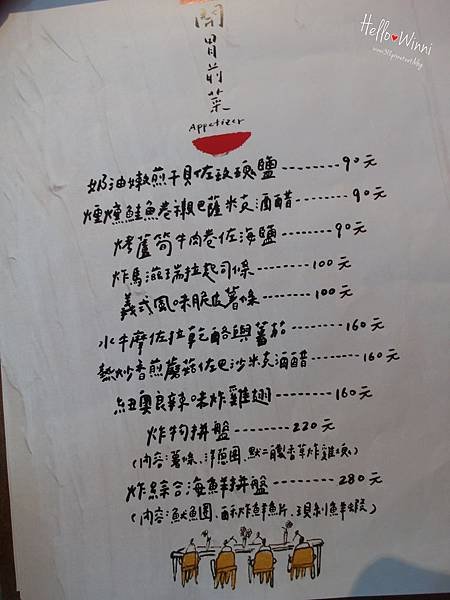 Hello♥Winni
開胃前菜
Appetizer
奶油嫩煎干貝佐玫瑰鹽--------90元
煙燻鮭魚卷襯巴薩米克酒醋-------90元
烤蘆筍牛肉卷佐海鹽-------90元
炸馬滋瑞拉起司條-------100元
義式風味脆皮薯條-------100元
水牛摩佐拉乾酪與蕃茄-------160元
熱炒香煎蘑菇佐巴沙米克酒醋-------160元
紐奧良辣味炸雞翅-------160元
炸物拼盤-------220元
(內容:薯條、洋蔥圈、
香草炸雞塊)
炸綜合海鮮拼盤-------280元
(內容:魷魚圈、酥炸鮮魚片、
鮮蝦)